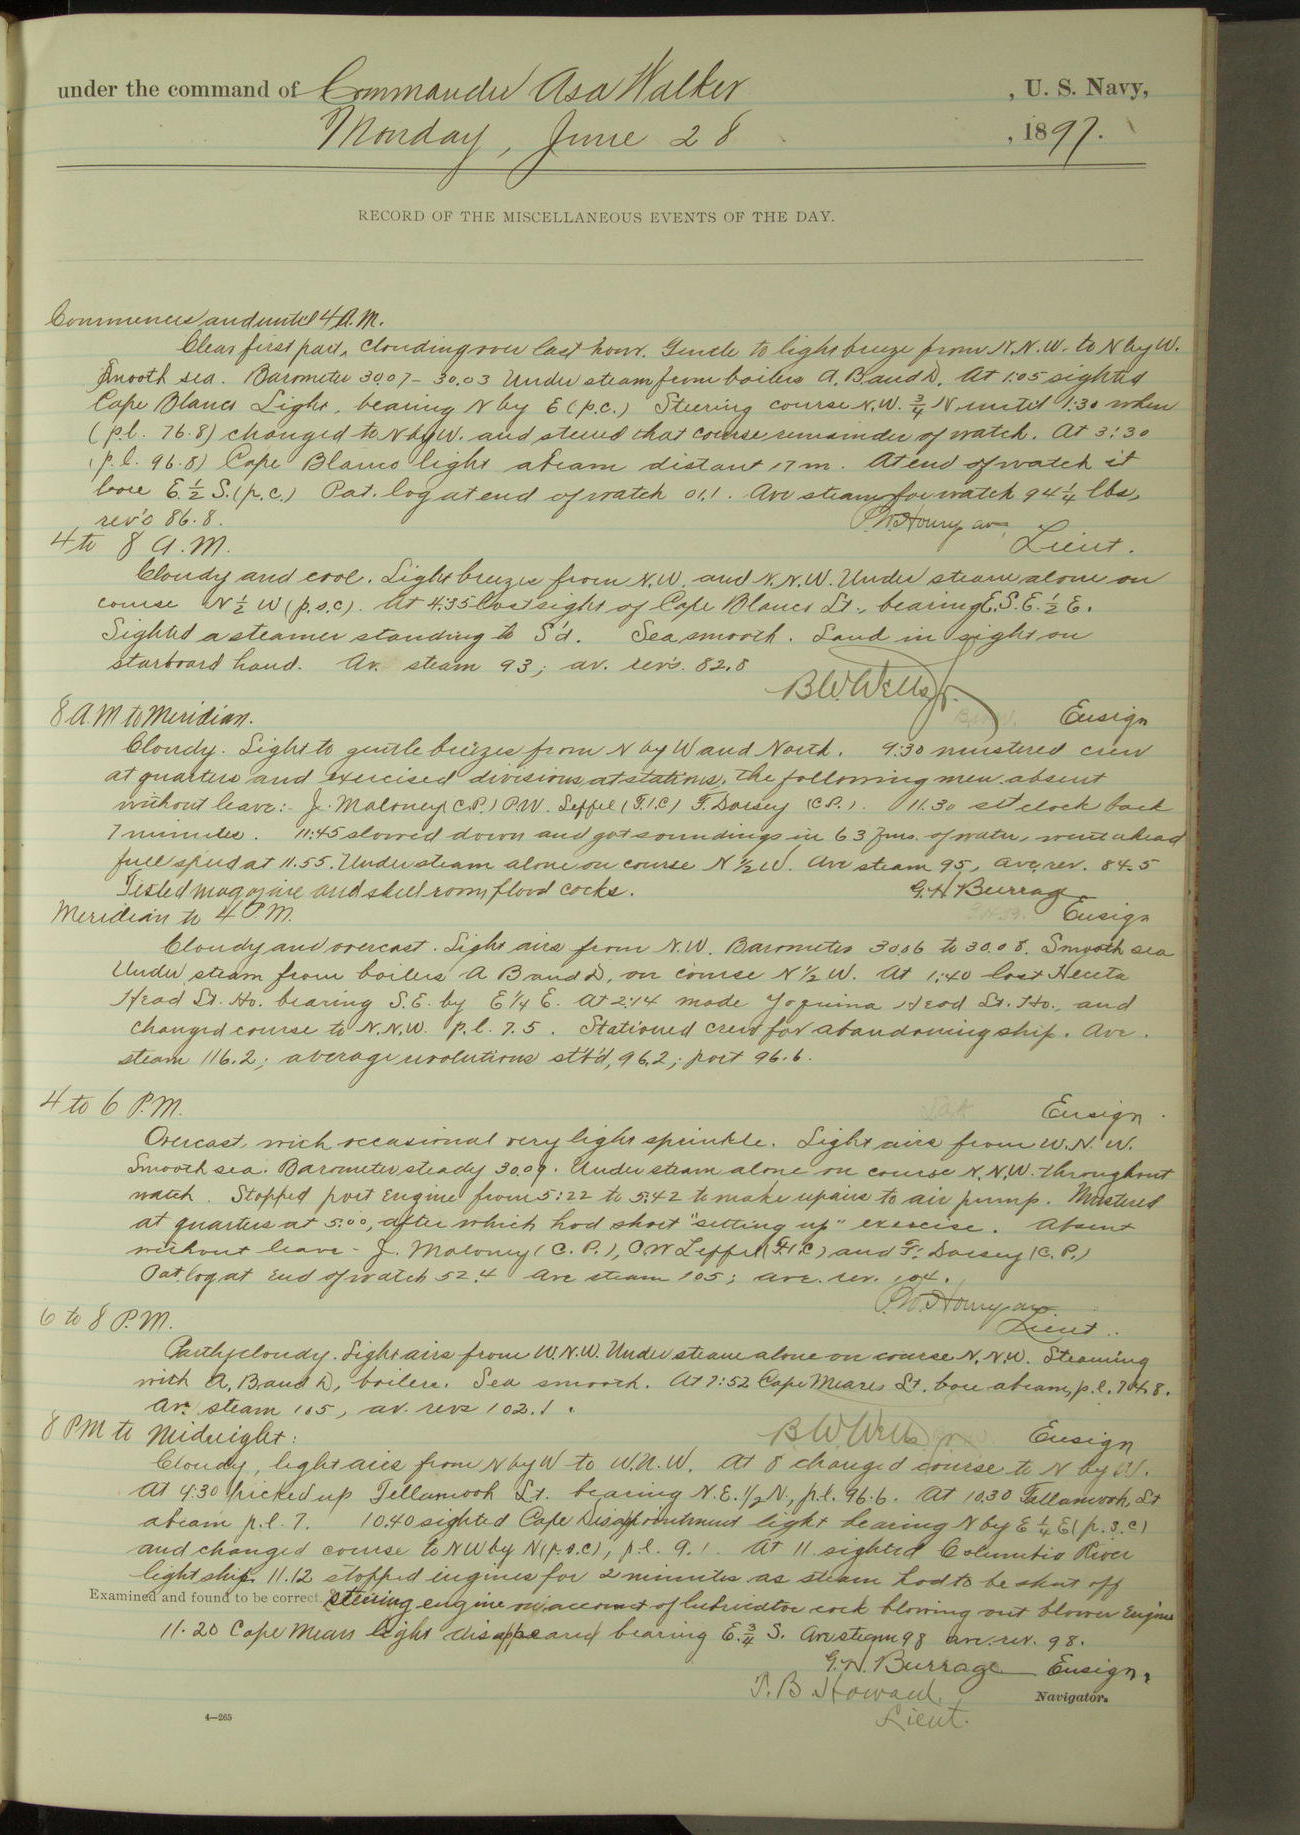 under the command of Commander Asa Walker, U. S. Navy,
Monday, June 28, 1897.
RECORD OF THE MISCELLANEOUS EVENTS OF THE DAY.
Commences and until 4 A.M.
Clear first part, clouding over last hour. Gentle to light breeze from N.N.W. to N by W.
Smooth sea. Barometer 30.07 - 30.03 Under steam from boilers A, B and D. At 1:05 sighted
Cape Blanco Light, bearing N by E (p.c.) Steering course N.W. 3/4 N until 1:30 when
(p.l. 76.8) changed to N by W. and steered that course remainder of watch. At 3:30
(p.l. 96.8) Cape Blanco light abeam distant 17 m. At end of watch it
bore E. 1/2 S. (p.c.) Pat. log at end of watch 01.1. Ave steam for watch 94 1/4 lbs,
rev's 86.8.
Lieut.
4 to 8 A.M.
Cloudy and cool. Light breezes from N.W. and N.N.W. Under steam alone on
course N 1/2 W (p.s.c). At 4:35 lost sight of Cape Blanco Lt., bearing E.S.E. 1/2 E.
Sighted a steamer standing to S'd. Sea smooth. Land in sight on
starboard hand. Av. steam 93; av. rev's. 82.8
B.W. Wells Jr.
8 A.M to Meridian. Ensign
Cloudy. Light to gentle breezes from N by W and North. 9:30 mustered crew
at quarters and exercised divisions at stations, the following men absent
without leave:- J. Maloney (C.P.) P.W. Leffel (F.1.C) F. Dorsey (C.P.). 11.30 set clock back
7 minutes. 11:45 slowed down and got soundings in 63 fms. of water, went ahead
full speed at 11.55. Under steam alone on course N 1/2 W. Ave steam 95, ave. rev. 84.5
Tested magazine and shell room flood cocks.
G.H. Burrage
Meridian to 4 P.M. Ensign
Cloudy and overcast. Light airs from N.W. Barometer 30.06 to 30.08. Smooth sea
Under steam from boilers A B and D, on course N 1/2 W. At 1:40 lost Heceta
Head Lt. Ho. bearing S.E. by E 1/4 E. At 2:14 made Yaquina Head Lt. Ho., and
changed course to N.N.W. p.l. 7.5. Stationed crew for abandoning ship. Ave.
steam 116.2; average revolutions st'b'd, 96.2; port 96.6.
4 to 6 P.M. Ensign
Overcast with occasional very light sprinkle. Light airs from W.N.W.
Smooth sea. Barometer steady 30.09. Under steam alone on course N.N.W. throughout
watch. Stopped port engine from 5:22 to 5:42 to make repairs to air pump. Mustered
at quarters at 5:00, after which had short "setting up" exercise. Absent
without leave - J. Maloney (C.P.), P W Leffel (F.1.C) and F. Dorsey (C.P.)
Pat. log at end of watch 52.4 Ave steam 105; ave. rev. 104.
6 to 8 P.M. Lieut.
Partly cloudy. Light airs from W.N.W. Under steam alone on course N.N.W. Steaming
with A, B and D, boilers. Sea smooth. At 7:52 Cape Meares Lt. bore abeam, p.l. 74.8.
Av. steam 105, av. revs 102.1.
B W Wells Jr
8 PM to Midnight: Ensign
Cloudy, light airs from N by W to W.N.W. At 8 changed course to N by W.
At 4:30 picked up Tillamook Lt. bearing N.E. 1/2 N., p.l. 96.6. At 10.30 Tillamook Lt
abeam p.l. 7. 10.40 sighted Cape Disappointment light bearing N by E 1/4 E (p.s.c)
and changed course to NW by N (p.s.c), p.l. 9.1 At 11 sighted Columbia River
light ship. 11.12 stopped engines for 2 minutes as steam had to be shut off
Examined and found to be correct. steering engine on account of lubricator cock blowing out blower engine
11.20 Cape Mears light disappeared bearing E. 3/4 S. Ave steam 98 ave. rev. 98.
G.H. Burrage Ensign,
T. B. Howard, Navigator.
Lieut.
4—265